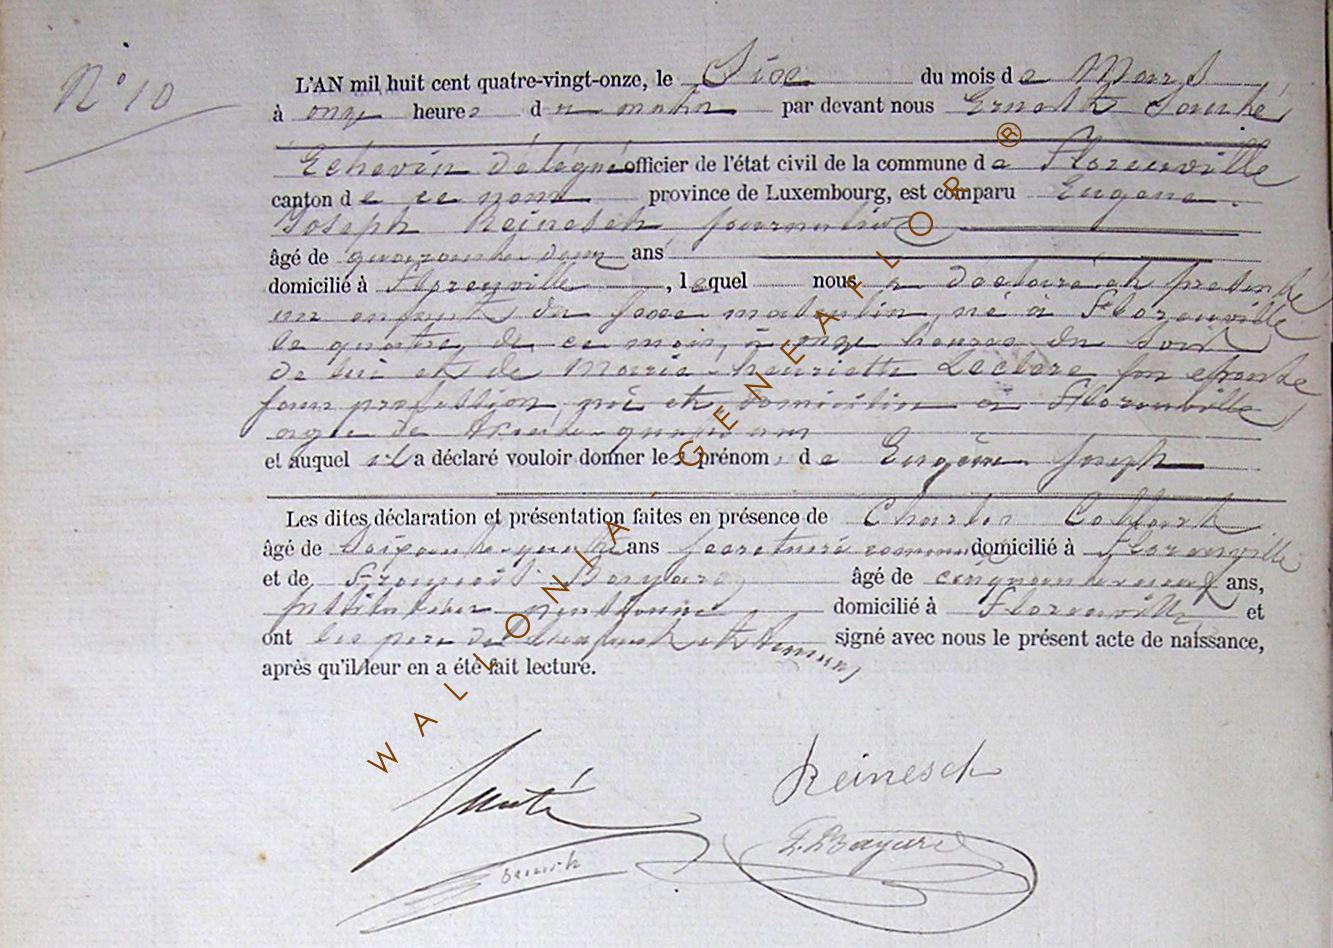 N° 10
L'AN mil huit cent quatre-vingt-onze, le Six du mois de Mars
à onze heures du matin par devant nous Ernest
Echevin délégué officier de l'état civil de la commune de Florenville
canton de ce nom province de Luxembourg, est comparu Eugène
Joseph Reinesch journalier
âgé de quarante deux ans
domicilié à Florenville, lequel nous a déclaré et présenté
un enfant du sexe masculin, né à Florenville
le quatre de ce mois, à onze heures du soir
de lui et de Marie-henriette Leclere son épouse
sans profession, née et domiciliée à Florenville
agée de trente-quatre ans
et auquel il a déclaré vouloir donner les prénoms de Eugène Joseph
Les dites déclaration et présentation faites en présence de Charles
âgé de ans Secrétaire communal domicilié à Florenville
et de François Bayard âgé de cinquante neuf ans,
instituteur pensionné domicilié à Florenville et
ont les père de l'enfant et témoins signé avec nous le présent acte de naissance,
après qu'il leur en a été fait lecture.
Reinesch
F. Bayard
WALLONIA - GENEAFLOR ®